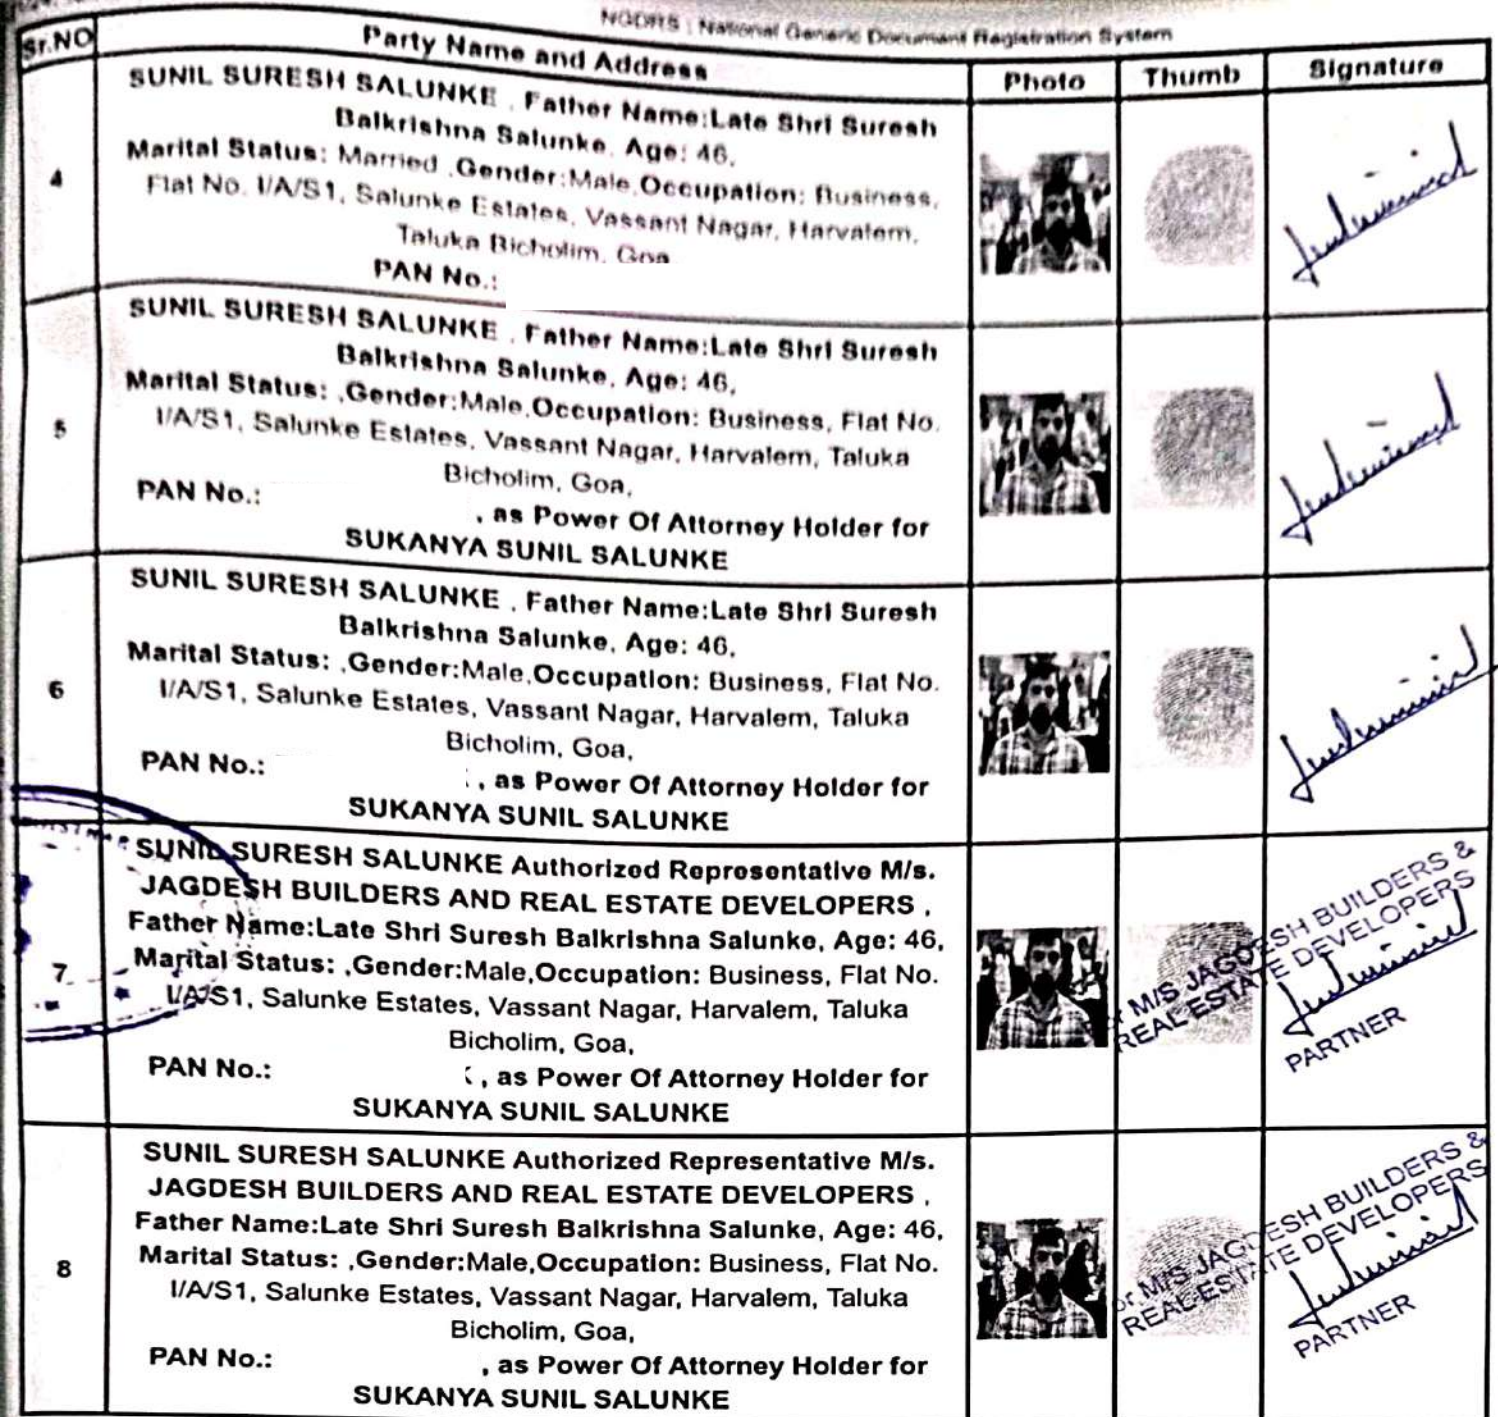 NGDRS : National Generic Document Registration System
Sr.NO
Party Name and Address
Photo
Thumb
Signature
4
SUNIL SURESH SALUNKE , Father Name:Late Shri Suresh
Balkrishna Salunke, Age: 46,
Marital Status: Married ,Gender:Male,Occupation: Business,
Flat No. I/A/S1, Salunke Estates, Vassant Nagar, Harvalem,
Taluka Bicholim, Goa
PAN No.:
5
SUNIL SURESH SALUNKE , Father Name:Late Shri Suresh
Balkrishna Salunke, Age: 46,
Marital Status: ,Gender:Male,Occupation: Business, Flat No.
I/A/S1, Salunke Estates, Vassant Nagar, Harvalem, Taluka
Bicholim, Goa,
PAN No.:
, as Power Of Attorney Holder for
SUKANYA SUNIL SALUNKE
6
SUNIL SURESH SALUNKE , Father Name:Late Shri Suresh
Balkrishna Salunke, Age: 46,
Marital Status: ,Gender:Male,Occupation: Business, Flat No.
I/A/S1, Salunke Estates, Vassant Nagar, Harvalem, Taluka
Bicholim, Goa,
PAN No.:
, as Power Of Attorney Holder for
SUKANYA SUNIL SALUNKE
7
SUNIL SURESH SALUNKE Authorized Representative M/s.
JAGDESH BUILDERS AND REAL ESTATE DEVELOPERS ,
Father Name:Late Shri Suresh Balkrishna Salunke, Age: 46,
Marital Status: ,Gender:Male,Occupation: Business, Flat No.
I/A/S1, Salunke Estates, Vassant Nagar, Harvalem, Taluka
Bicholim, Goa,
PAN No.:
, as Power Of Attorney Holder for
SUKANYA SUNIL SALUNKE
M/S JAGDESH BUILDERS &
REAL ESTATE DEVELOPERS
PARTNER
8
SUNIL SURESH SALUNKE Authorized Representative M/s.
JAGDESH BUILDERS AND REAL ESTATE DEVELOPERS ,
Father Name:Late Shri Suresh Balkrishna Salunke, Age: 46,
Marital Status: ,Gender:Male,Occupation: Business, Flat No.
I/A/S1, Salunke Estates, Vassant Nagar, Harvalem, Taluka
Bicholim, Goa,
PAN No.:
, as Power Of Attorney Holder for
SUKANYA SUNIL SALUNKE
M/S JAGDESH BUILDERS &
REAL ESTATE DEVELOPERS
PARTNER